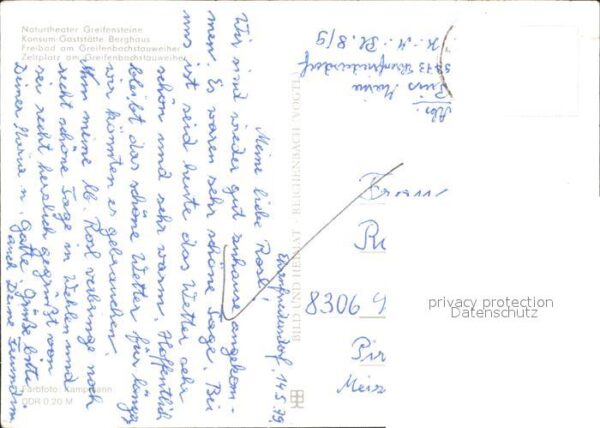 Naturtheater Greifensteine
Konsum-Gaststätte Berghaus
Freibad am Greifenbachstauweiher
Zeltplatz am Greifenbachstauweiher
Ehrenfriedersdorf, 14.5.79
Meine liebe Rosl!
Wir sind wieder gut zuhause angekom-
men. Es waren sehr schöne Tage. Bei
uns ist seid heute das Wetter sehr
schön und sehr warm. Hoffentlich
bleibt das schöne Wetter für länger
wir könnten es gebrauchen.
Nun meine lb. Rosl verbringe noch
recht schöne Tage in Wehlen und
sei recht herzlich gegrüßt von
Deiner Maria u. Gatte. Grüße bitte
auch Deine Freundin
Farbfoto: Kampmann
DDR 0,20 M
BILD UND HEIMAT · REICHENBACH (VOGTL)
Abs.
Maria
Ehrenfriedersdorf
8306
Pir
privacy protection
Datenschutz